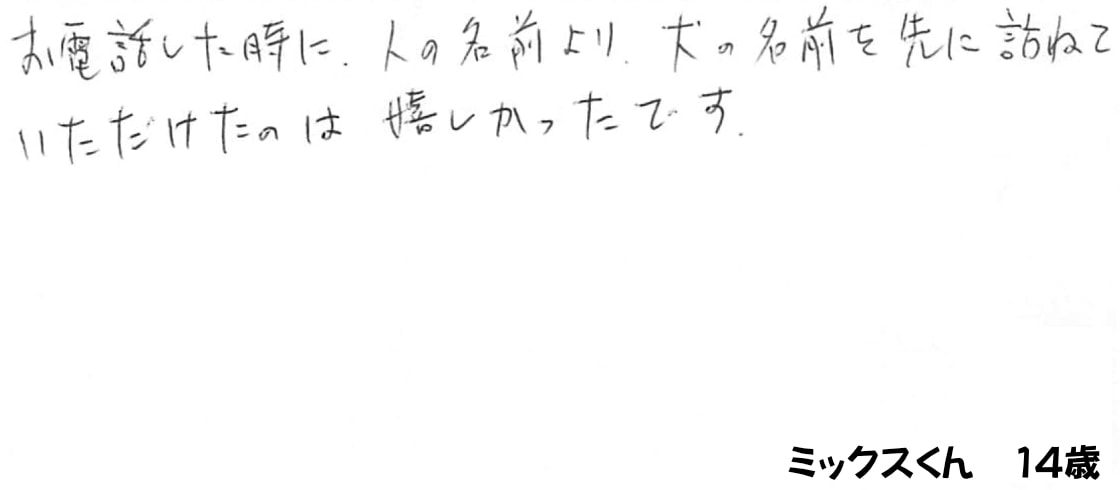 お電話した時に、人の名前より、犬の名前を先に訪ねて
いただけたのは 嬉しかったです.
ミックスくん 14歳